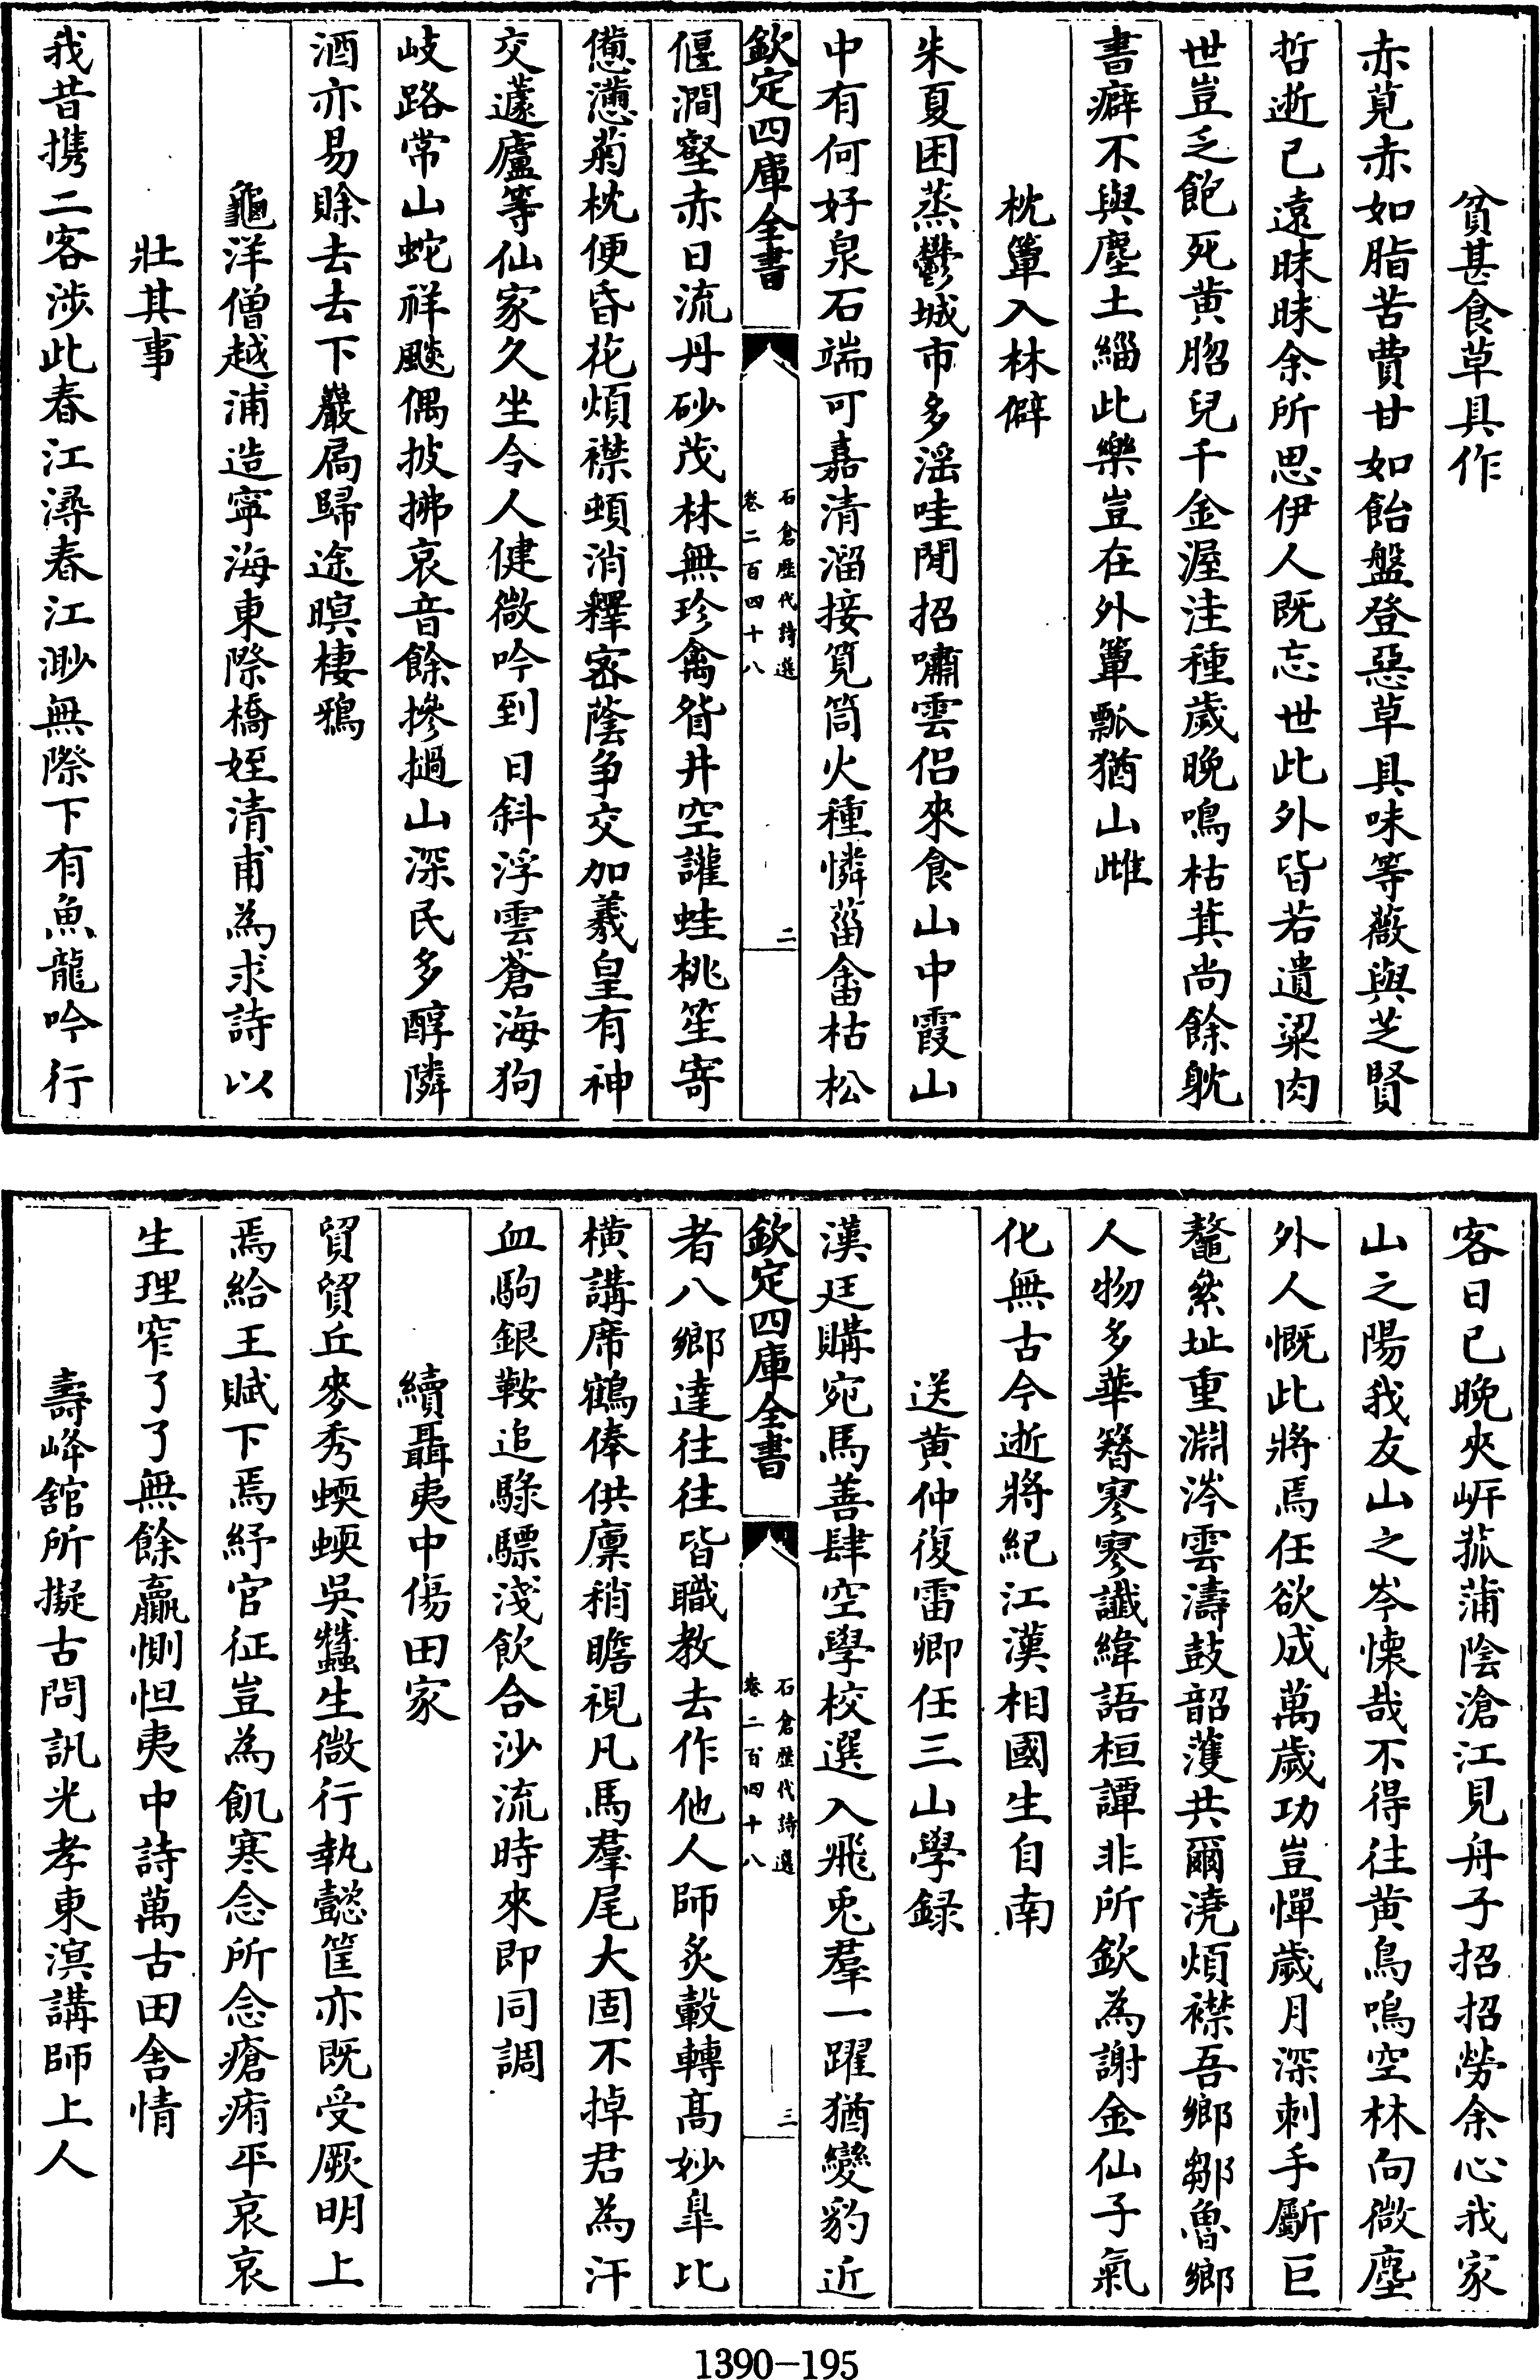 貧甚食草具作
赤莧赤如脂苦蕒甘如飴盤登惡草具味等薇與芝賢
哲逝已遠昧昧余所思伊人既忘世此外皆若遺粱肉
世豈乏飽死黄䐇兒千金渥洼種歲晚鳴枯萁尚餘躭
書癖不與塵土緇此樂豈在外簞瓢猶山雌
枕簟入林僻
朱夏困蒸鬱城市多淫哇聞招嘯雲侣來食山中霞山
中有何好泉石端可嘉清溜接筧筒火種憐菑畬枯松
欽定四庫全書
石倉歴代詩選
卷二百四十八
二
偃澗壑赤日流丹砂茂林無珍禽眢井空讙蛙桃笙寄
憊懣菊枕便昏花煩襟頓消釋宻蔭争交加羲皇有神
交蘧廬等仙家久坐令人健微吟到日斜浮雲蒼海狗
岐路常山蛇祥颷偶披拂哀音餘摻撾山深民多醇隣
酒亦易賖去去下巖扃歸途暝棲鴉
龜洋僧越浦造寜海東際橋姪清甫為求詩以
壯其事
我昔携二客涉此春江潯春江渺無際下有魚龍吟行
客日已晚夾岍菰蒲隂滄江見舟子招招勞余心我家
山之陽我友山之岑懐哉不得往黄鳥鳴空林向微塵
外人慨此將焉任欲成萬歲功豈憚歲月深刺手斸巨
鼇絫址重淵涔雲濤鼓韶頀共爾澆煩襟吾鄉鄒魯鄉
人物多華簪寥寥讖緯語桓譚非所欽為謝金仙子氣
化無古今逝將紀江漢相國生自南
送黄仲復雷卿任三山學録
漢廷購宛馬善肆空學校選入飛兎羣一躍猶變豹近
欽定四庫全書
石倉歴代詩選
卷二百四十八
三
者八鄉達往往皆職教去作他人師炙轂轉髙妙臯比
横講席鶴俸供廩稍瞻視凡馬羣尾大固不掉君為汗
血駒銀鞍追騄驃淺飲合沙流時來即同調
續聶夷中傷田家
貿貿丘麥秀蝡蝡吳蠶生微行執懿筐亦既受厥明上
焉給王賦下焉紓官征豈為飢寒念所念瘡痏平哀哀
生理窄了了無餘贏惻怛夷中詩萬古田舍情
壽峰舘所擬古問訊光孝東溟講師上人
1390-195